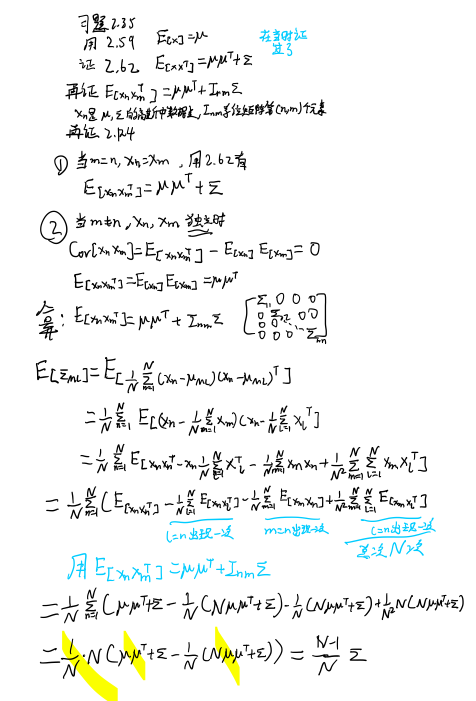 习题2.35
用 2.59 E[x]=μ
在当时证过了
证 2.62 E[xxᵀ]=μμᵀ+Σ
再证 E[xₙxₘᵀ]=μμᵀ+IₙₘΣ
xₙ是 μ,Σ的高斯中数据点, Iₙₘ单位矩阵第(n,m)个元素
再证 2.124
① 当m=n, xₙ=xₘ, 用2.62有
E[xₙxₘᵀ]=μμᵀ+Σ
② 当m≠n, xₙ, xₘ 独立时
Cov[xₙ xₘ]=E[xₙxₘᵀ]-E[xₙ]E[xₘ]=0
E[xₙxₘᵀ]=E[xₙ]E[xₘ]=μμᵀ
合并: E[xₙxₘᵀ]=μμᵀ+IₙₘΣ
E[Σ_ML]=E[1/N Σ_{n=1}^N (xₙ-μ_ML)(xₙ-μ_ML)ᵀ]
=1/N Σ_{n=1}^N E[(xₙ-1/N Σ_{m=1}^N xₘ)(xₙ-1/N Σ_{l=1}^N x_lᵀ]
=1/N Σ_{n=1}^N E[xₙxₙᵀ-xₙ 1/N Σ_{l=1}^N x_lᵀ-1/N Σ_{m=1}^N xₘxₙ+1/N² Σ_{m=1}^N Σ_{l=1}^N xₘx_lᵀ]
=1/N Σ_{n=1}^N (E[xₙxₙᵀ]-1/N Σ_{l=1}^N E[xₙx_lᵀ]-1/N Σ_{m=1}^N E[xₘxₙ]+1/N² Σ_{m=1}^N Σ_{l=1}^N E[xₘx_lᵀ]
l=n出现一次 m=n出现一次 l=n出现一次
N次
用 E[xₙxₘᵀ]=μμᵀ+IₙₘΣ
=1/N Σ_{n=1}^N (μμᵀ+Σ-1/N(Nμμᵀ+Σ)-1/N(Nμμᵀ+Σ)+1/N² N(Nμμᵀ+Σ)
=1/N·N(μμᵀ+Σ-1/N(Nμμᵀ+Σ))=N-1/N Σ